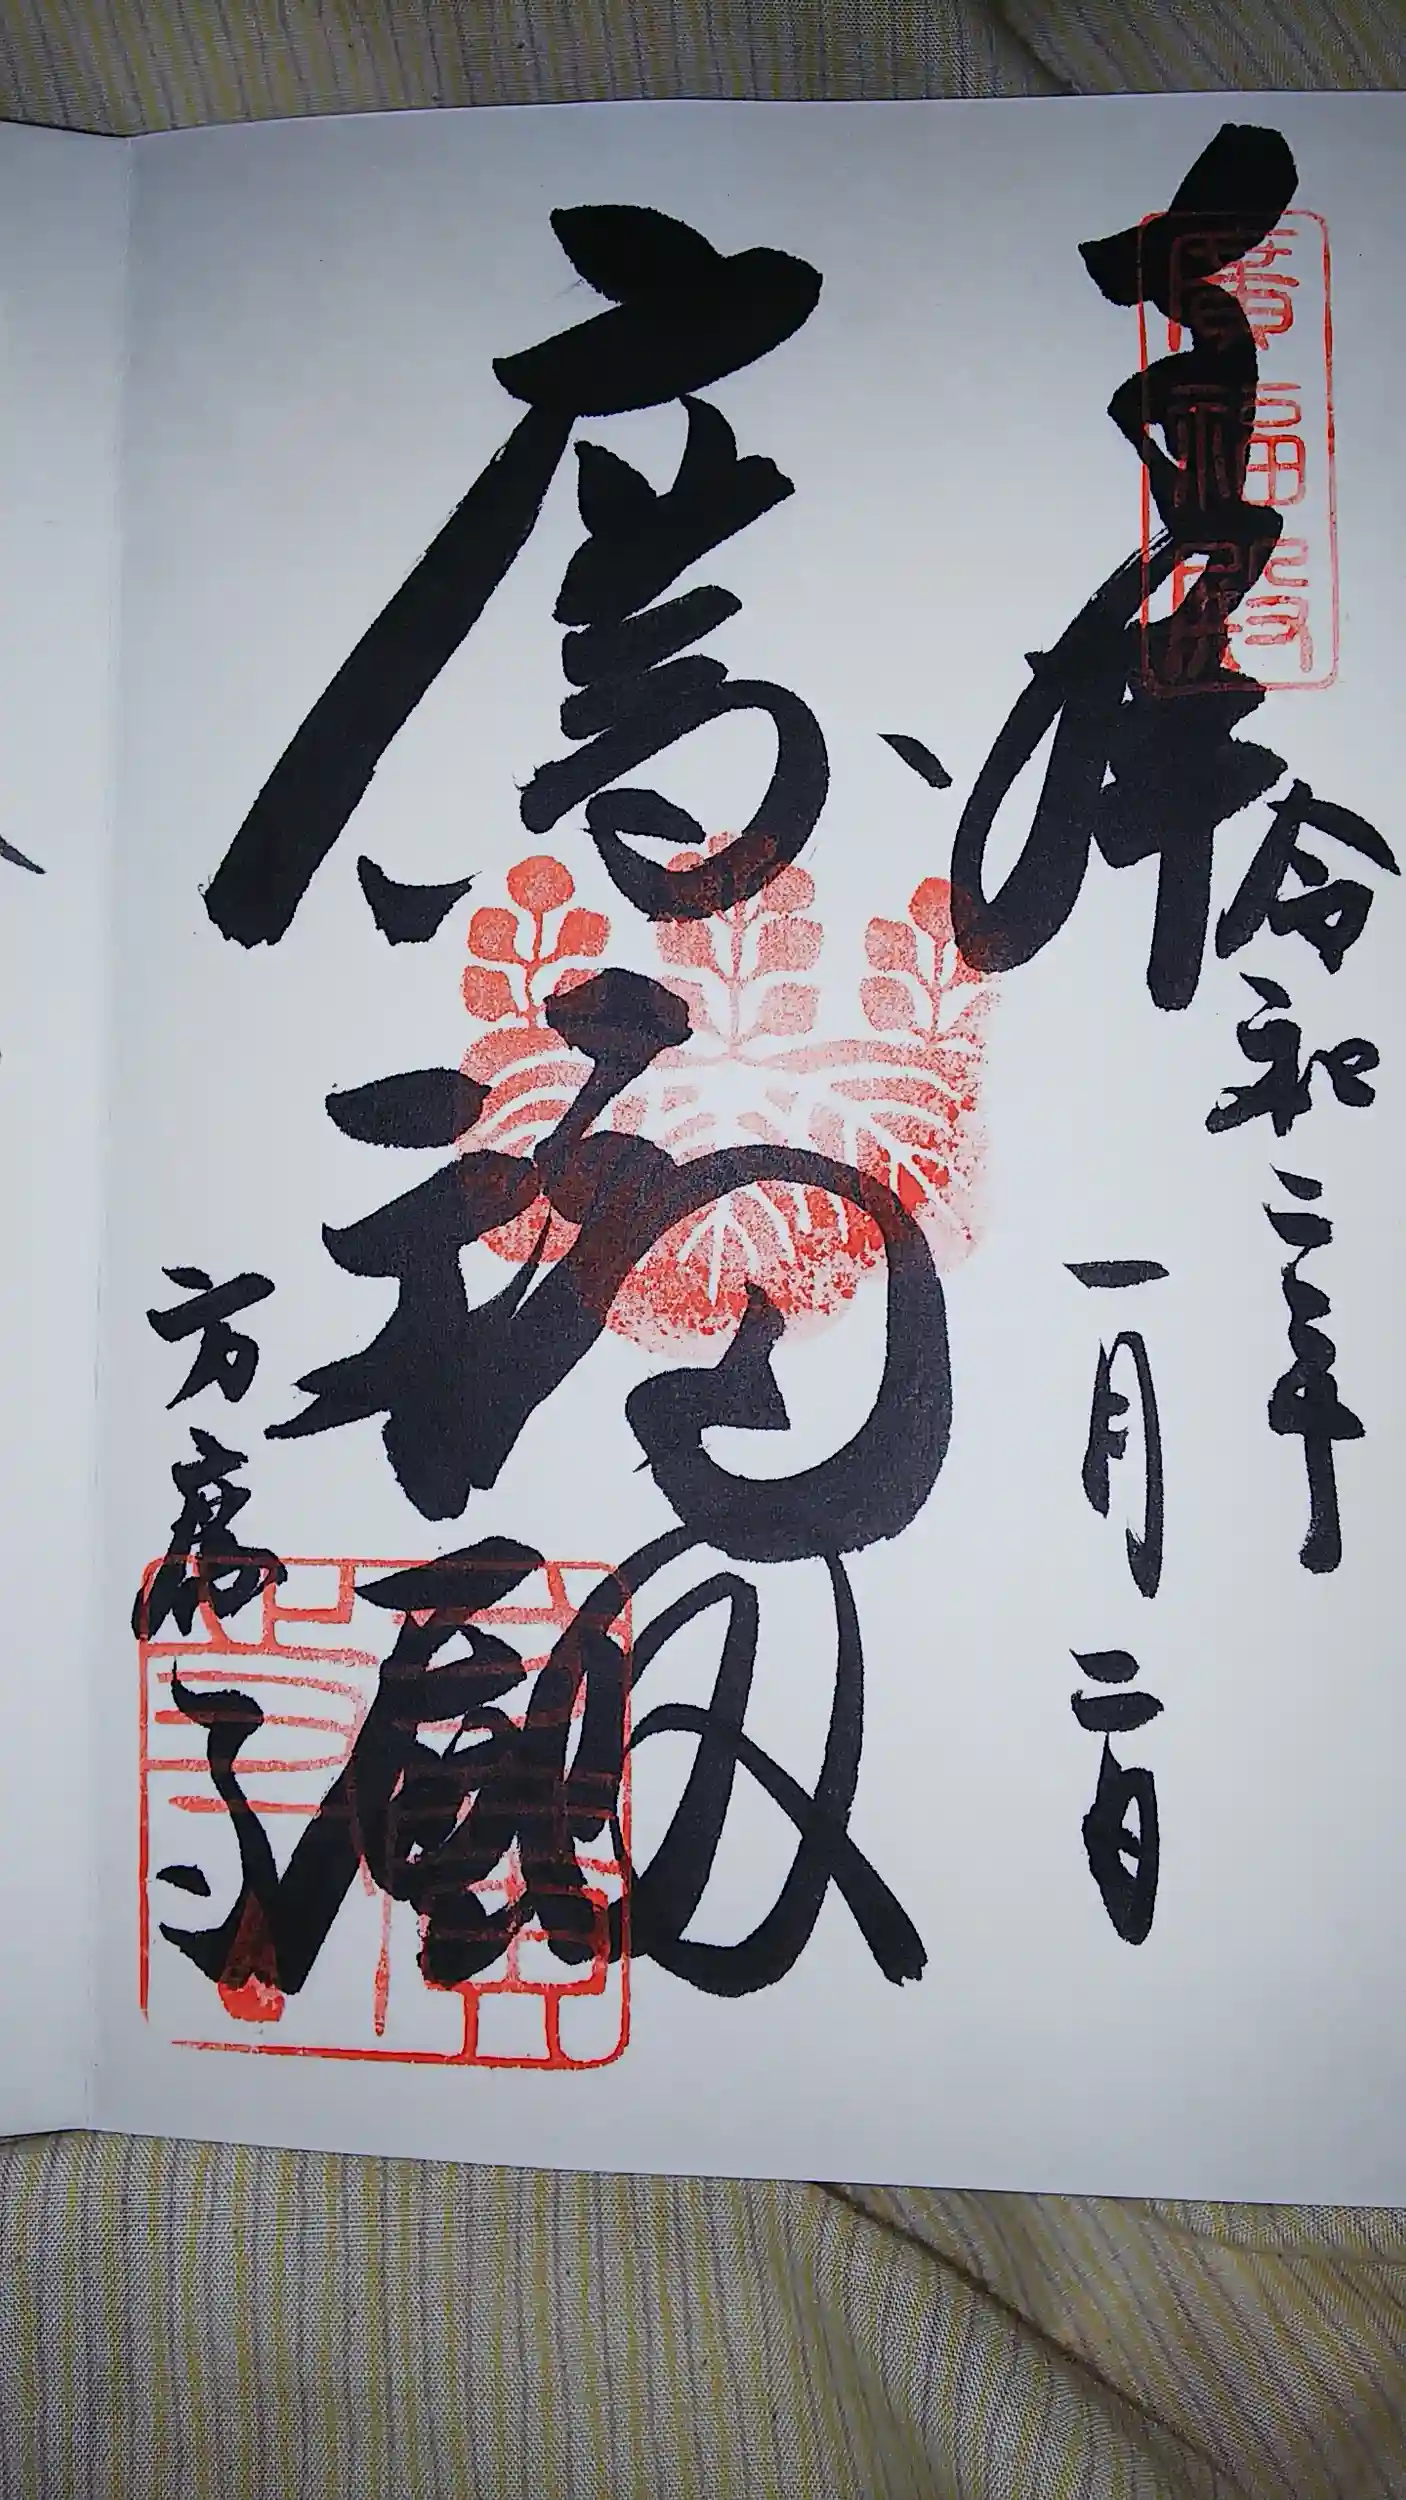 奉拝
令和二年
一月二日
廣福殿
廣福殿
方廣寺